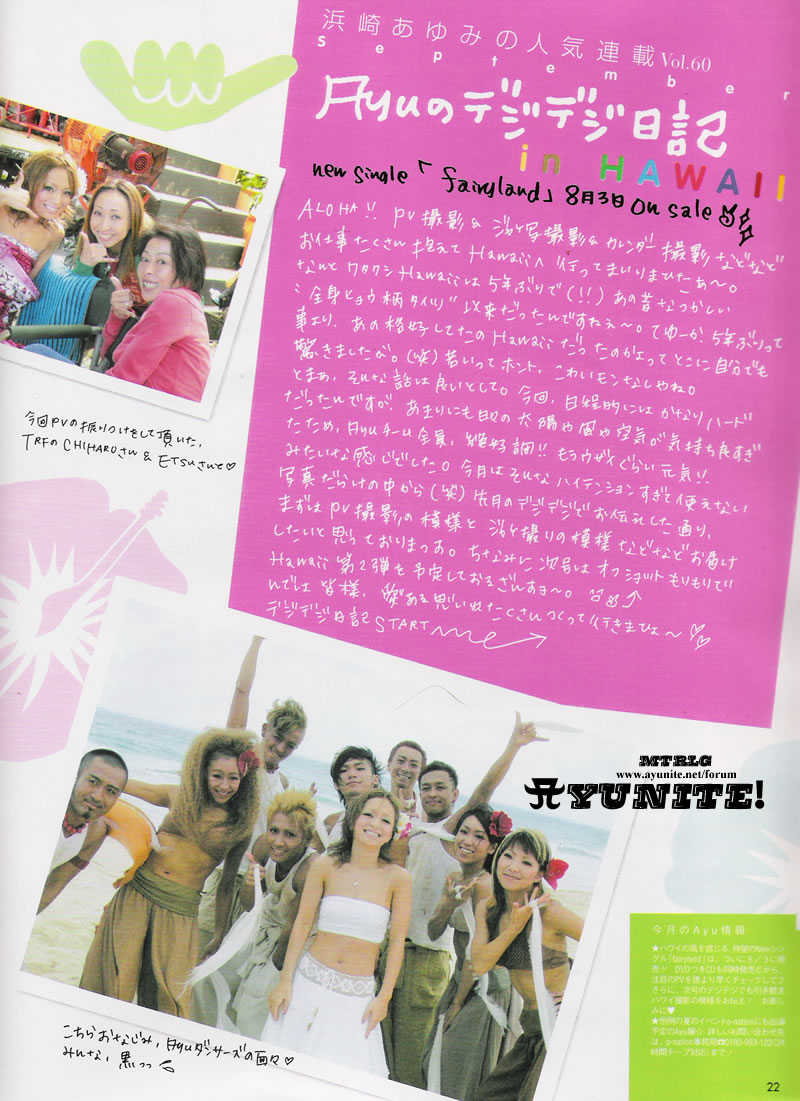 浜崎あゆみの人気連載 Vol.60
September
Ayuのデジデジ日記
in HAWAII
new single「fairyland」8月3日 on sale
ALOHA!! PV撮影&ジャケ写撮影&カレンダー撮影などなど
お仕事たくさん抱えてHawaiiへ行ってまいりまひたぁ〜。
なんとワタクシHawaiiは5年ぶりで(!!)あの昔なつかしい
"全身ヒョウ柄タイツ"以来だったんですねぇ〜。てゆーか5年ぶりって
事より、あの格好してたのHawaiiだったのかえってとこに自分でも
驚きましたが。(笑)若いってホント、こわいモンなしやね。
とまぁ、そんな話は良いとして。今回、日程的にはかなりハード
だったんですが、あまりにも日々の太陽や風や空気が気持ち良すぎ
たため、Ayuチーム全員、絶好調!!もうウザイぐらい元気!!
みたいな感じでした。今月はそんなハイテンションすぎて使えない
写真だらけの中から(笑)先月のデジデジでお伝えした通り、
まずはPV撮影の模様とジャケ撮りの模様などなどお届け
したいと思っておりまっす。ちなみに次号はオフショットもりもりで
Hawaii第2弾を予定しておるざんすョ〜。
んでは皆様、愛ある思い出たくさんつくって行きまひょ〜♡♡
デジデジ日記START
今回PVの振りつけをして頂いた、
TRFのCHIHARUさん&ETSUさんと♡
MTRLG
www.ayunite.net/forum
AYUNITE!
こちらおなじみ、Ayuダンサーズの面々♡
みんな、黒っっ
今月のAyu情報
★ハワイの風を感じる、待望のNewシン
グル「fairyland」は、ついに8/3に発
売!! DVDつきCDも同時発売だから、
注目のPVを誰より早くチェックして♪
さらに、次号のデジデジでも引き続き、
ハワイ撮影の模様をお伝え! お楽し
みに♥
★恒例の夏のイベントa-nationにも出演
予定のAyu嬢☆ 詳しいお問い合わせ先
は、a-nation事務局☎0180-993-122(24
時間テープ対応)まで!
22